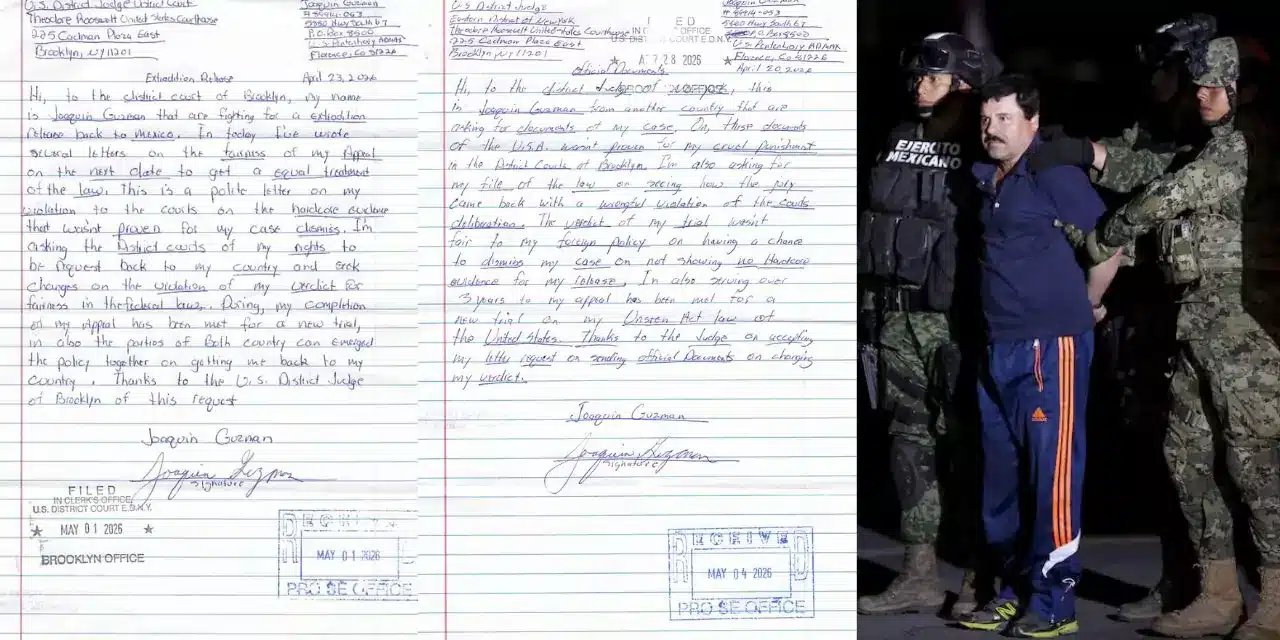 U.S. District Judge District Court
Theodore Roosevelt United States Courthouse
225 Cadman Plaza East
Brooklyn, NY 11201
Joaquin Guzman
# 89914-053
5880 Hwy South 67
P.O. Box 8500
U.S. Penitentiary ADMAX
Florence, Co 81226
Extradition Release April 23, 2026
Hi, to the district court of Brooklyn, my name
is Joaquin Guzman that are fighting for a extradition
release back to Mexico. In today I've wrote
several letters on the fairness of my Appeal
on the next date to get a equal treatment
of the law. This is a polite letter on my
violation to the courts on the hardcore evidence
that wasn't proven for my case dismiss. I'm
asking the District courts of my rights to
be request back to my country and seek
changes on the violation of my verdict for
fairness in the federal laws. During, my completion
of my Appeal has been met for a new trial,
in also the parties of Both country can emerged
the policy together on getting me back to my
country. Thanks to the U.S. District Judge
of Brooklyn of this request
Joaquin Guzman
Joaquin Guzman
Signature
FILED
IN CLERK'S OFFICE
U.S. DISTRICT COURT E.D.N.Y.
★ MAY 01 2026 ★
BROOKLYN OFFICE
RECEIVED
MAY 01 2026
PRO SE OFFICE
U.S. District Judge
Eastern District of New York
Theodore Roosevelt United States Courthouse
225 Cadman Plaza East
Brooklyn, NY 11201
Joaquin Guzman
# 89914-053
5880 Hwy South 67
P.O. Box 8500
U.S. Penitentiary ADMAX
Florence, Co 81226
April 20, 2026
ED
OFFICE
U.S. DISTRICT COURT E.D.N.Y.
★ 28 2026 ★
Official Documents
Hi, to the district Judge this
is Joaquin Guzman from another country that are
asking for documents of my case. On, these documents
of the U.S.A. wasn't proven for my cruel punishment
in the District Courts of Brooklyn. I'm also asking for
my file of the law on seeing how the jury
came back with a wrongful violation of the courts
deliberation. The verdict of my trial wasn't
fair to my foreign policy on having a chance
to dismiss my case on not showing no Hardcore
evidence for my release. In also serving over
3 years to my appeal has been met for a
new trial on my Act law of
the United States. Thanks to the Judge on accepting
my letter request on sending official Documents on changing
my verdict.
Joaquin Guzman
Joaquin Guzman
Signature
RECEIVED
MAY 04 2026
PRO SE OFFICE
EJERCITO
MEXICANO